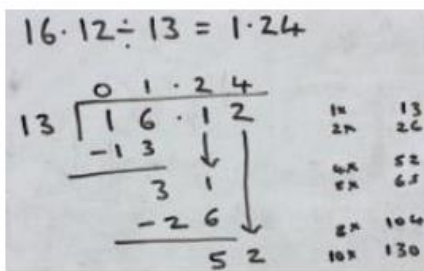 16·12÷13 = 1·24
0 1 · 2 4
13 1 6 · 1 2
-1 3
3 1
-2 6
5 2
1x 13
2x 26
4x 52
5x 65
8x 104
10x 130